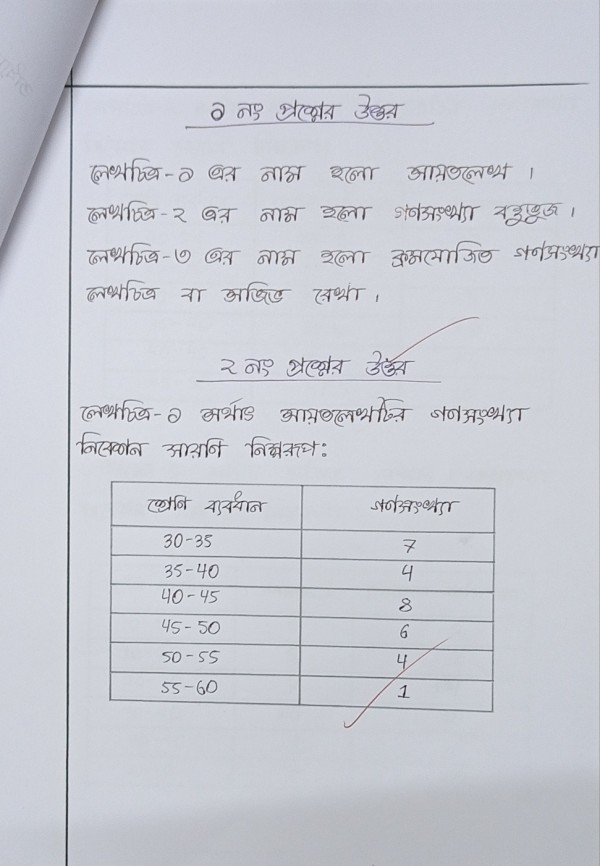 ১ নং প্রশ্নের উত্তর
লেখচিত্র-১ এর নাম হলো আয়তলেখ ।
লেখচিত্র-২ এর নাম হলো গণসংখ্যা বহুভুজ ।
লেখচিত্র-৩ এর নাম হলো ক্রমযোজিত গণসংখ্যা
লেখচিত্র বা অজিভ রেখা ।
২ নং প্রশ্নের উত্তর
লেখচিত্র-১ অর্থাৎ আয়তলেখটির গণসংখ্যা
নিবেশন সারণি নিম্নরূপ:
শ্রেণি ব্যবধান গণসংখ্যা
30-35 7
35-40 4
40-45 8
45-50 6
50-55 4
55-60 1